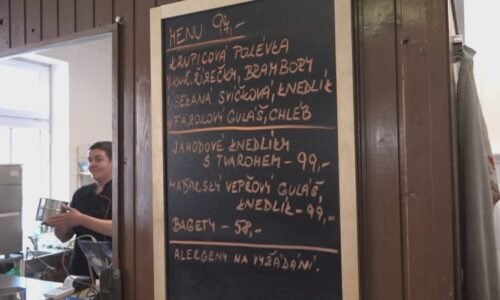 MENU 94,-
KRUPICOVÁ POLÉVKA
KUŘ. ŘÍZEČKY, BRAMBORY
SEKANÁ SVÍČKOVÁ, KNEDLÍK
FAZOLOVÝ GULÁŠ, CHLÉB
JAHODOVÉ KNEDLÍKY
S TVAROHEM - 99,-
MAĎARSKÝ VEPŘOVÝ GULÁŠ,
KNEDLÍK - 99,-
BAGETY - 58,-
ALERGENY NA VYŽÁDÁNÍ.